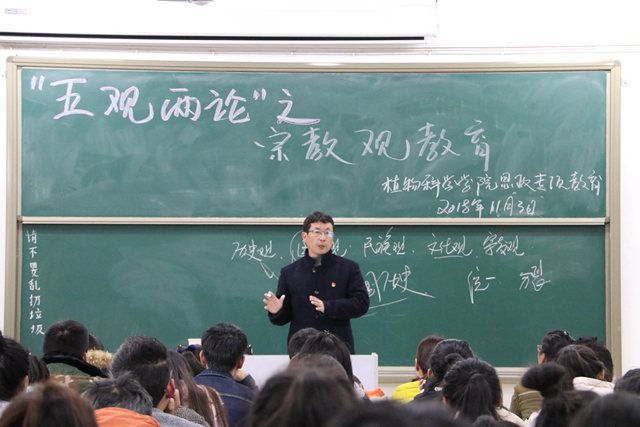 "五观两论"之
宗教观教育
植物科学学院思政专项教育
2018年11月3日
历史观、 民族观、文化观、宗教观
历史
统一 分裂
请不要乱扔垃圾